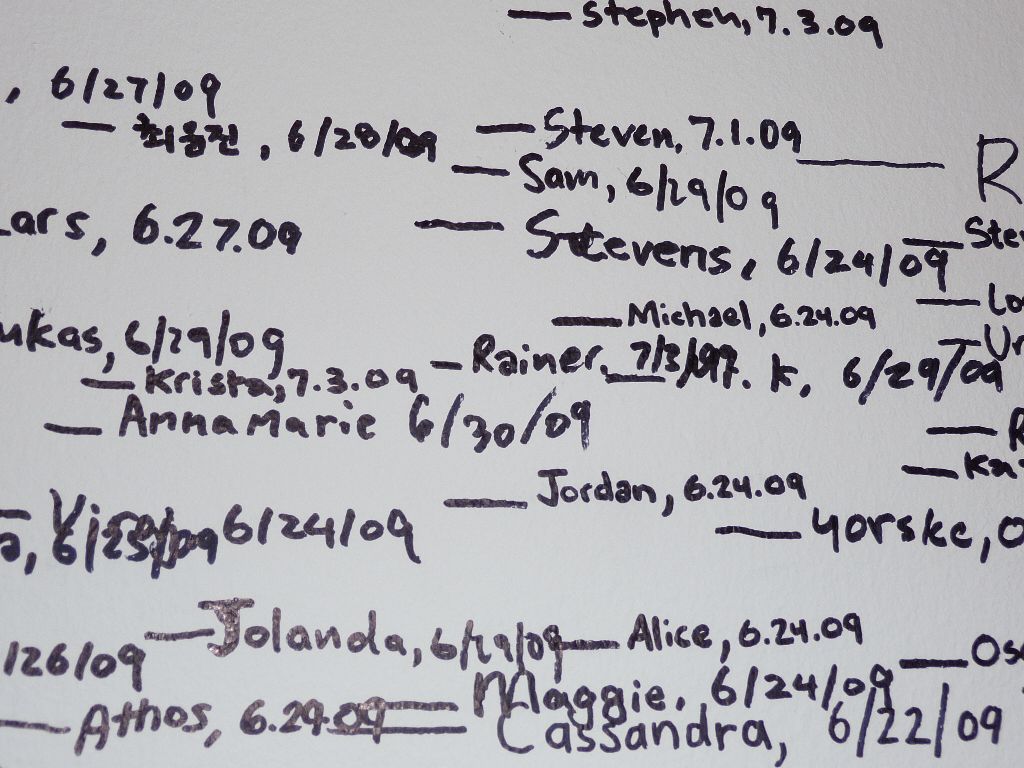 Stephen, 7.3.09
, 6/27/09
최웅진, 6/28/09
Steven, 7.1.09
R
Sam, 6/29/09
Lars, 6.27.09
Stevens, 6/24/09
Stev
Michael, 6.24.09
Lo
ukas, 6/29/09
Ur
Rainer, 7/3/09
K, 6/29/09
Krista, 7.3.09
Annamarie 6/30/09
R
Ka
Jordan, 6.24.09
6/24/09
Yorske, 0
a, 6/25/09
Jolanda, 6/29/09
Alice, 6.24.09
/26/09
Os
Maggie, 6/24/09
Athos, 6.29.09
Cassandra, 6/22/09